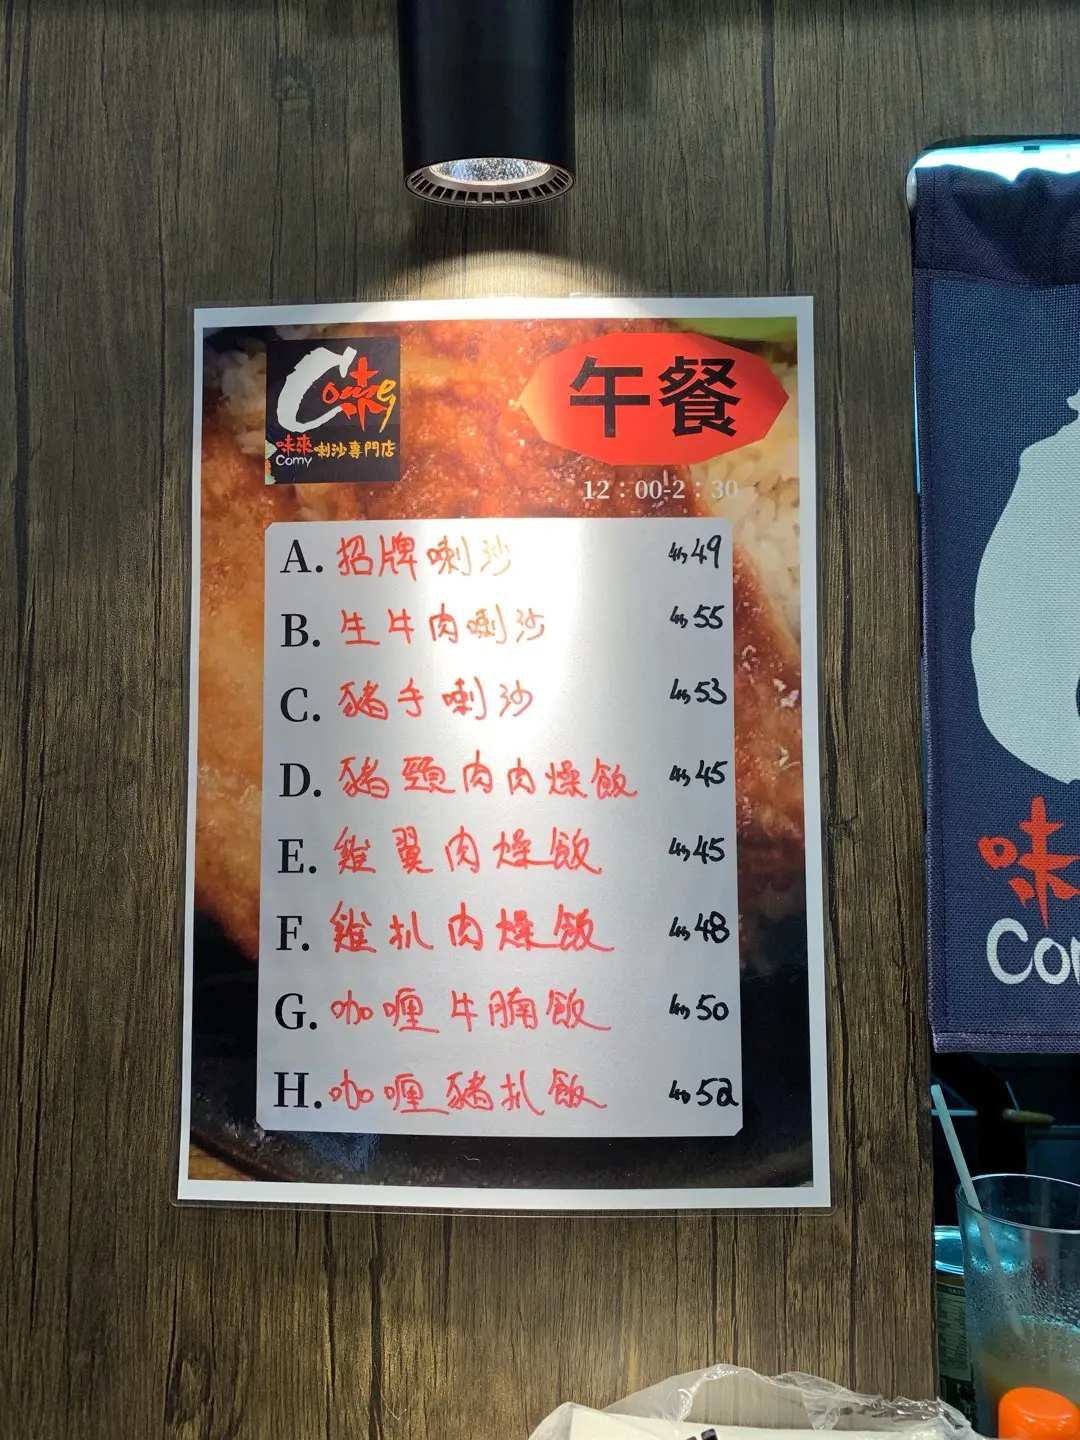 Come
味來
Comy
喇沙專門店
午餐
12：00-2：30
A. 招牌喇沙 $49
B. 生牛肉喇沙 $55
C. 豬手喇沙 $53
D. 豬頸肉肉燥飯 $45
E. 雞翼肉燥飯 $45
F. 雞扒肉燥飯 $48
G. 咖喱牛腩飯 $50
H. 咖喱豬扒飯 $52
味
Co